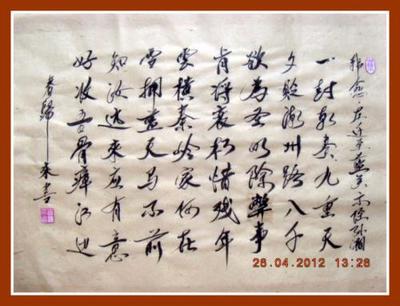 韩愈 左迁至蓝关示侄孙湘
一封朝奏九重天
夕贬潮州路八千
欲為圣明除弊事
肯将衰朽惜残年
雲横秦岭家何在
雪拥蓝关马不前
知汝远来应有意
好收吾骨瘴江边
春归
书
28.04.2012 13:28